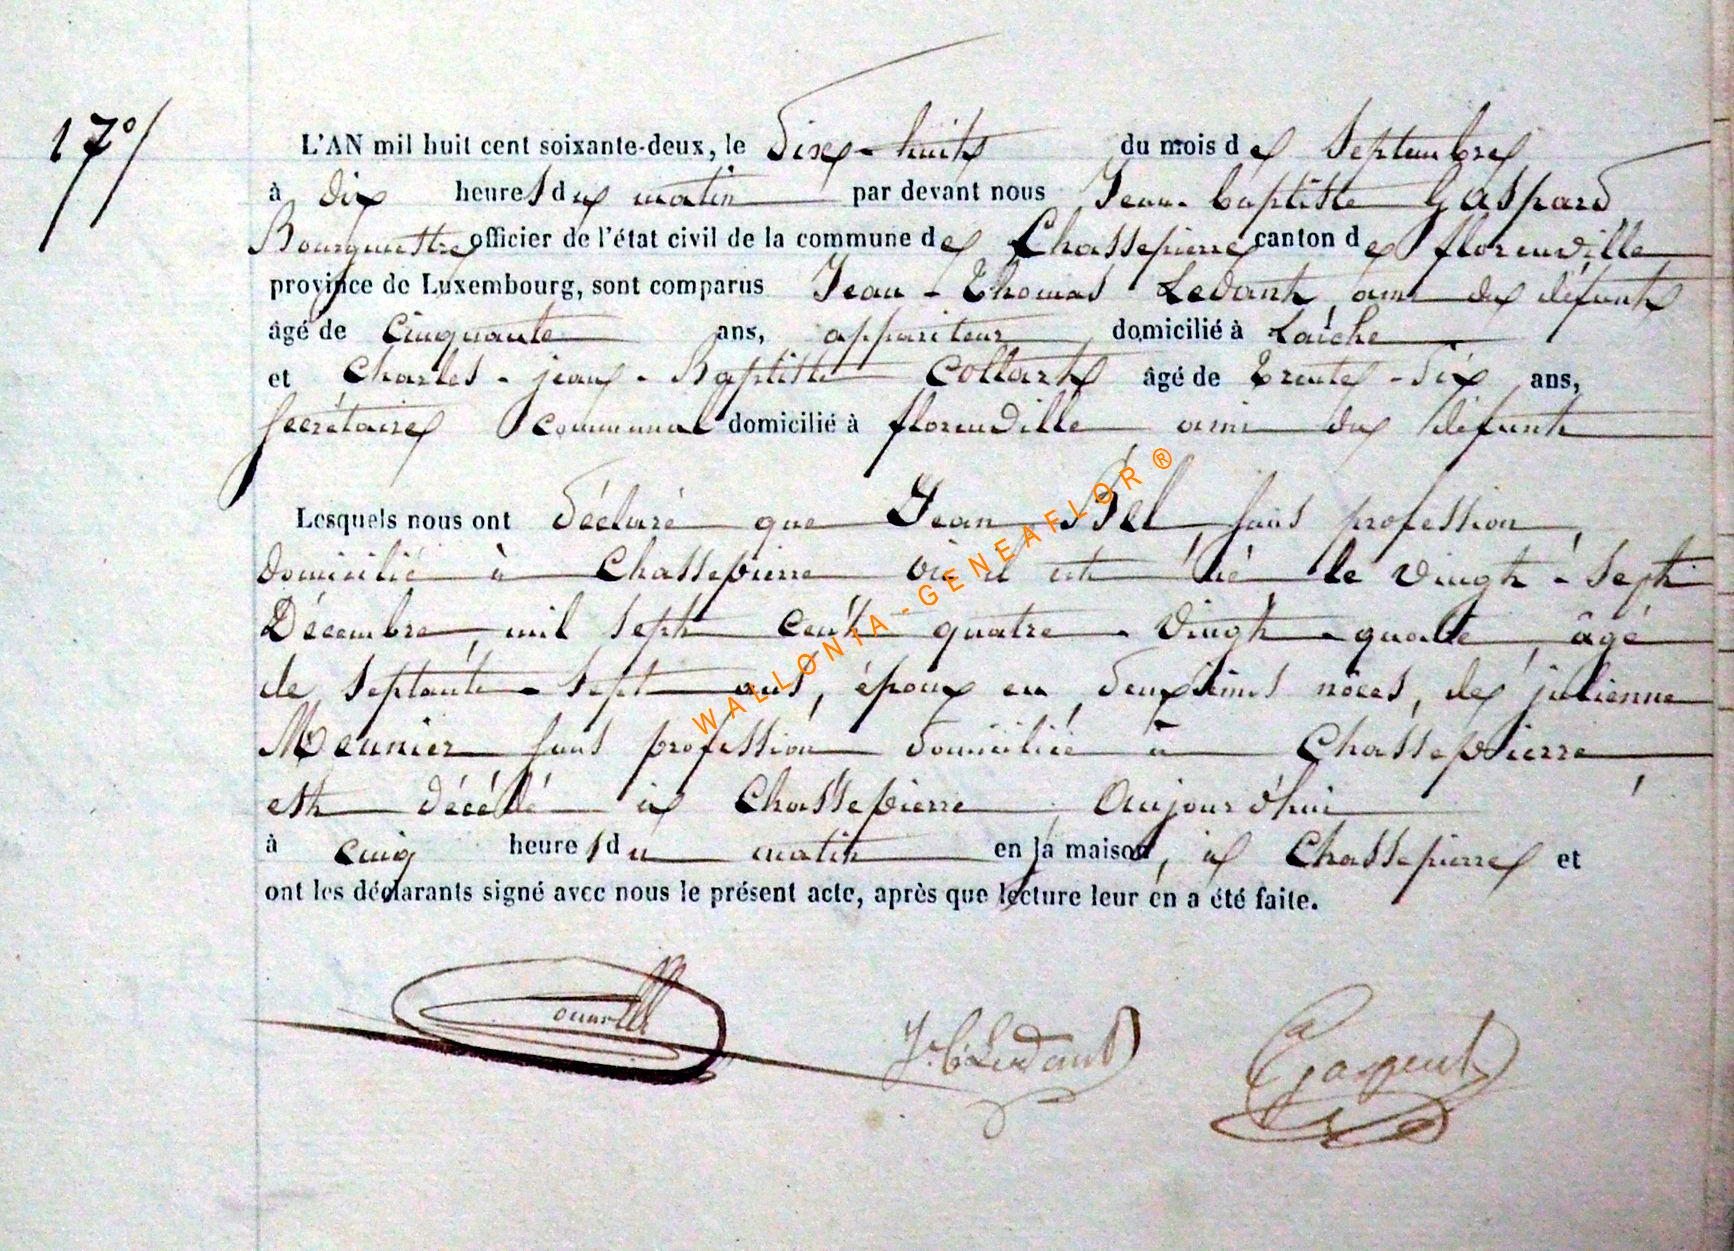 17°/
L'AN mil huit cent soixante-deux, le Dix-huit du mois de Septembre
à dix heures du matin par devant nous Jean-baptiste Gaspard
Bourgmestre officier de l'état civil de la commune de Chassepierre canton de florenville
province de Luxembourg, sont comparus Jean-Thomas Ledant, ami du défunt
âgé de Cinquante ans, appariteur domicilié à Laiche
et Charles-jean-Baptiste Collart âgé de Trente-Six ans,
Secrétaire communal domicilié à florenville ami du défunt
Lesquels nous ont déclaré que Jean Bel, sans profession,
domicilié à Chassepierre où il est né le vingt-Sept
Décembre, mil sept cent quatre-vingt-quatre, âgé
de septante-sept ans, époux en deuxièmes nôces, de julienne
Meunier sans profession domiciliée à Chassepierre,
est décédé à Chassepierre, Aujourd'hui
à cinq heures du matin en sa maison, à Chassepierre et
ont les déclarants signé avec nous le présent acte, après que lecture leur en a été faite.
WALLONIA-GENEAFLOR ®
Ledant